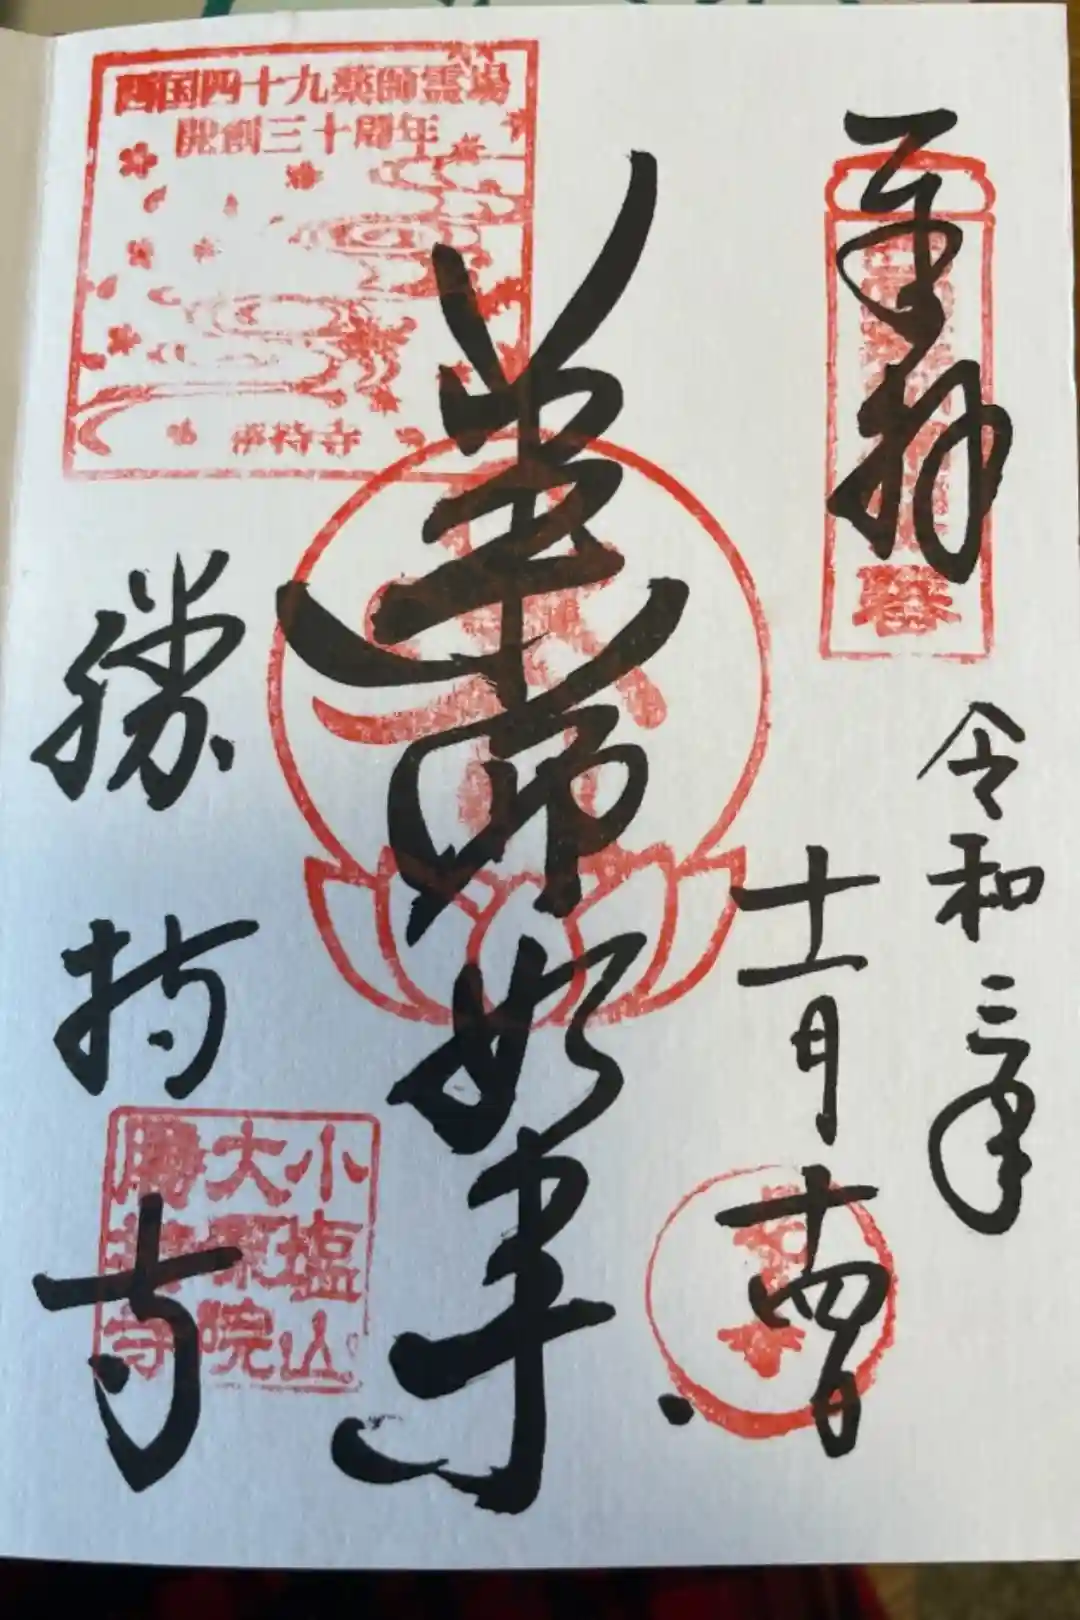 奉拝
令和三年
十一月十四日
薬師如来
勝持寺
西国四十九薬師霊場
開創三十周年
勝持寺
小塩山
大原院
勝持寺